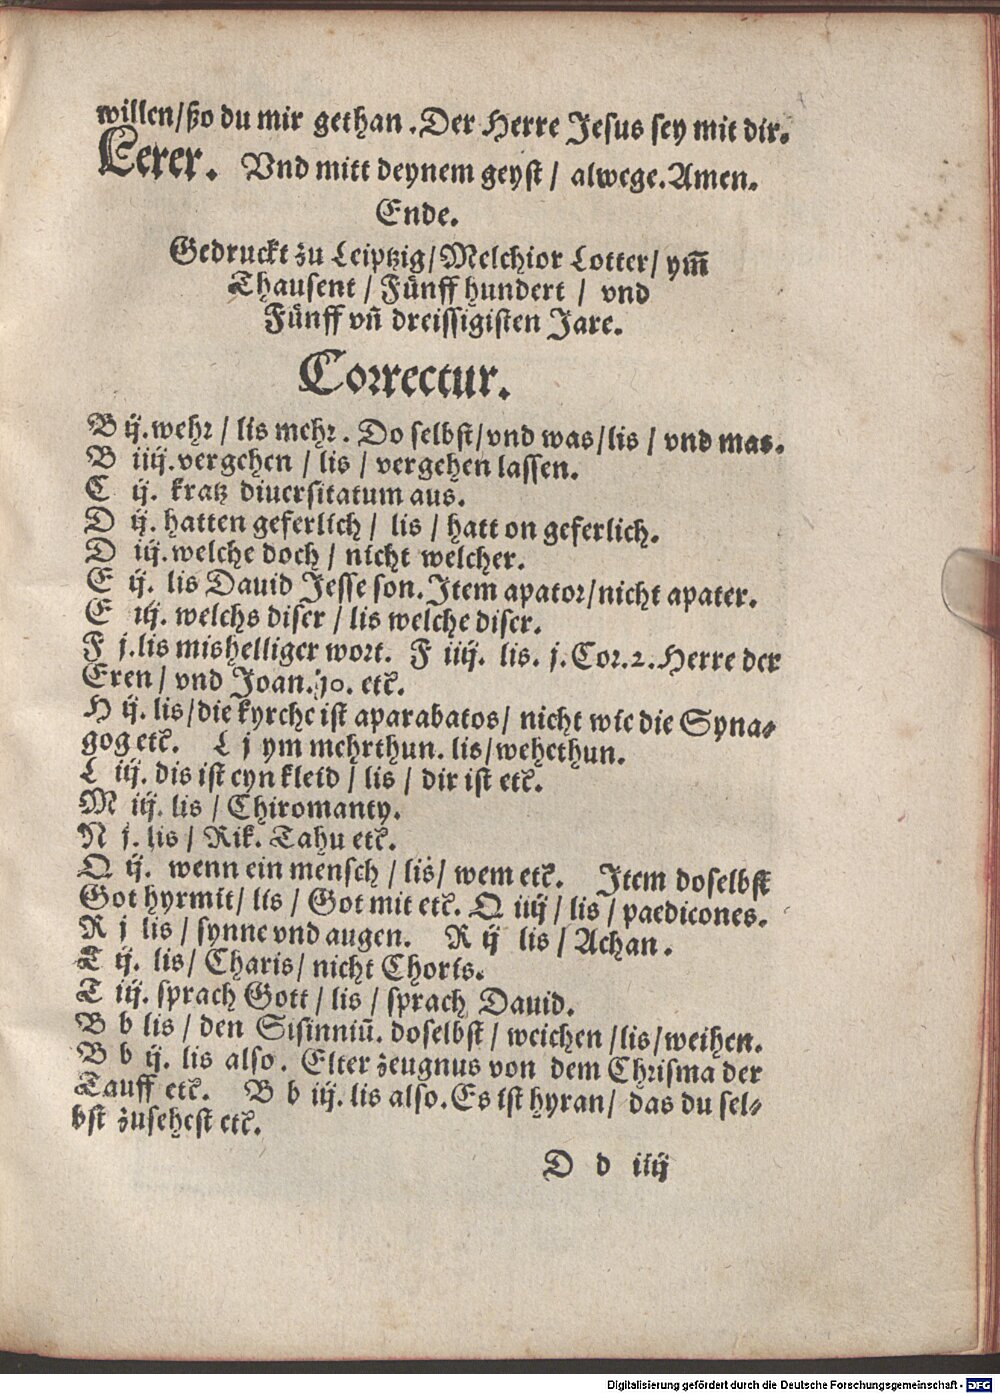 willen/ßo du mir gethan. Der Herre Jesus sey mit dir.
Lerer. Vnd mitt deynem geyst / alwege. Amen.
Ende.
Gedruckt zu Leiptzig/Melchior Lotter/ ym̄
Thausent / Fünff hundert / vnd
Fünff vn̄ dreissigisten Jare.
Correctur.
B ij. wehr / lis mehr. Do selbst/vnd was/lis / vnd mas.
B iiij. vergehen / lis / vergehen lassen.
C ij. kratz diuersitatum aus.
D ij. hatten geferlich / lis / hatt on geferlich.
D iij. welche doch / nicht welcher.
E ij. lis Dauid Jesse son. Item apator/nicht apater.
E iij. welchs diser / lis welche diser.
F j. lis mishelliger wort. F iiij. lis. j. Cor. 2. Herre der
Eren / vnd Joan. 10. etc.
H ij. lis/die kyrche ist aparabatos/ nicht wie die Syna-
gog etc. L j ym mehrthun. lis/wehethun.
L iij. dis ist eyn kleid / lis / dir ist etc.
M iij. lis / Chiromanty.
N j. lis / Rik. Tahu etc.
Q ij. wenn ein mensch / lis/ wem etc. Item doselbst
Got hyrmit/ lis / Got mit etc. Q iiij / lis / paedicones.
R j lis / synne vnd augen. R ij lis / Achan.
T ij. lis/ Charis/ nicht Choris.
T iij. sprach Gott / lis / sprach Dauid.
B b lis / den Sisinniū. doselbst / weichen /lis/weihen.
B b ij. lis also. Elter zeugnus von dem Chrisma der
Tauff etc. B b iij. lis also. Es ist hyran/ das du sel-
bst zusehest etc.
D d iiij
Digitalisierung gefördert durch die Deutsche Forschungsgemeinschaft - DFG